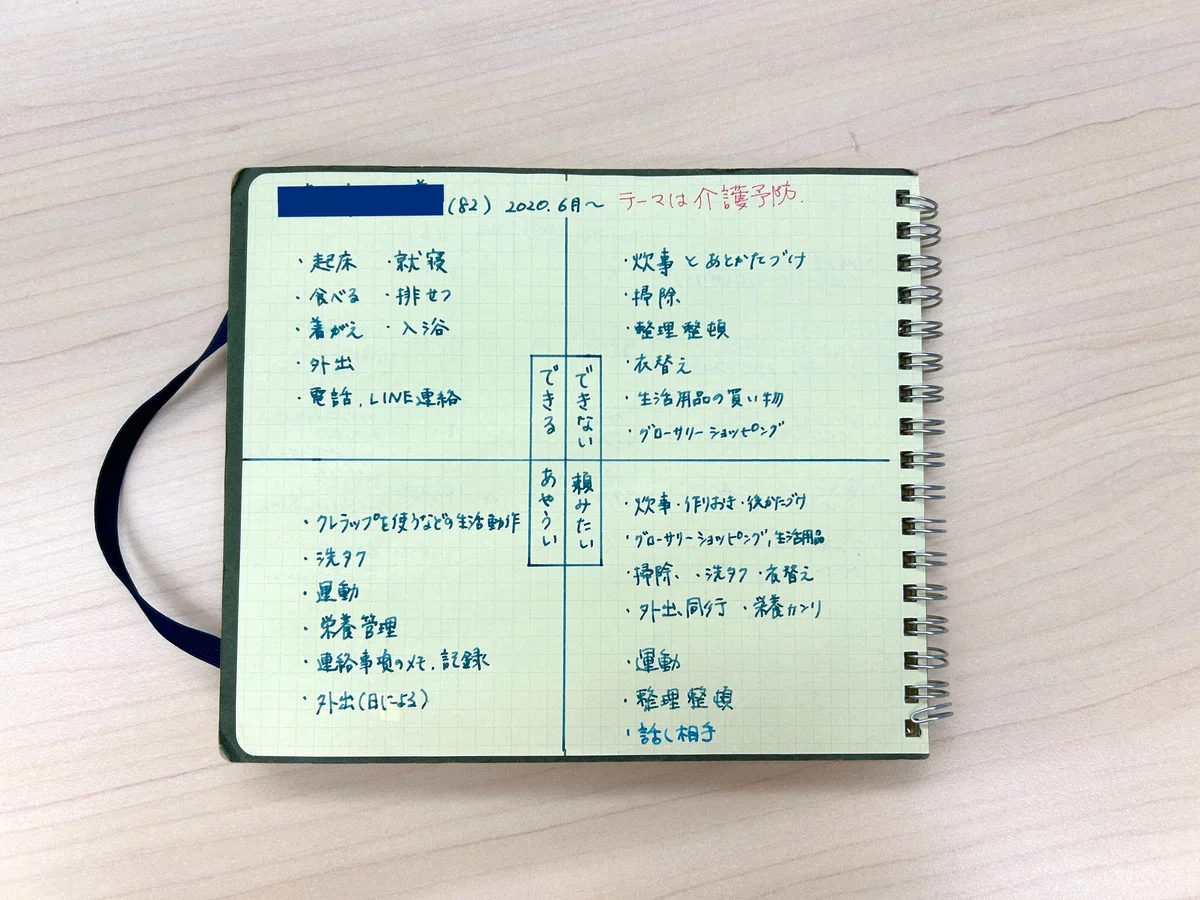 (82) 2020.6月〜 テーマは介護予防.
・起床 ・就寝
・食べる ・排せつ
・着がえ ・入浴
・外出
・電話、LINE連絡
できる
・炊事とあとかたづけ
・掃除、
・整理整頓
・衣替え
・生活用品の買い物
・グローサリーショッピング
できない
・クレラップを使うなどの生活動作
・洗タク
・運動
・栄養管理
・連絡事項のメモ、記録
・外出(日による)
あやうい
・炊事・作りおき・後かたづけ
・グローサリーショッピング,生活用品
・掃除、・洗タク・衣替え
・外出、同行 ・栄養カンリ
・運動
・整理整頓
・話し相手
頼みたい